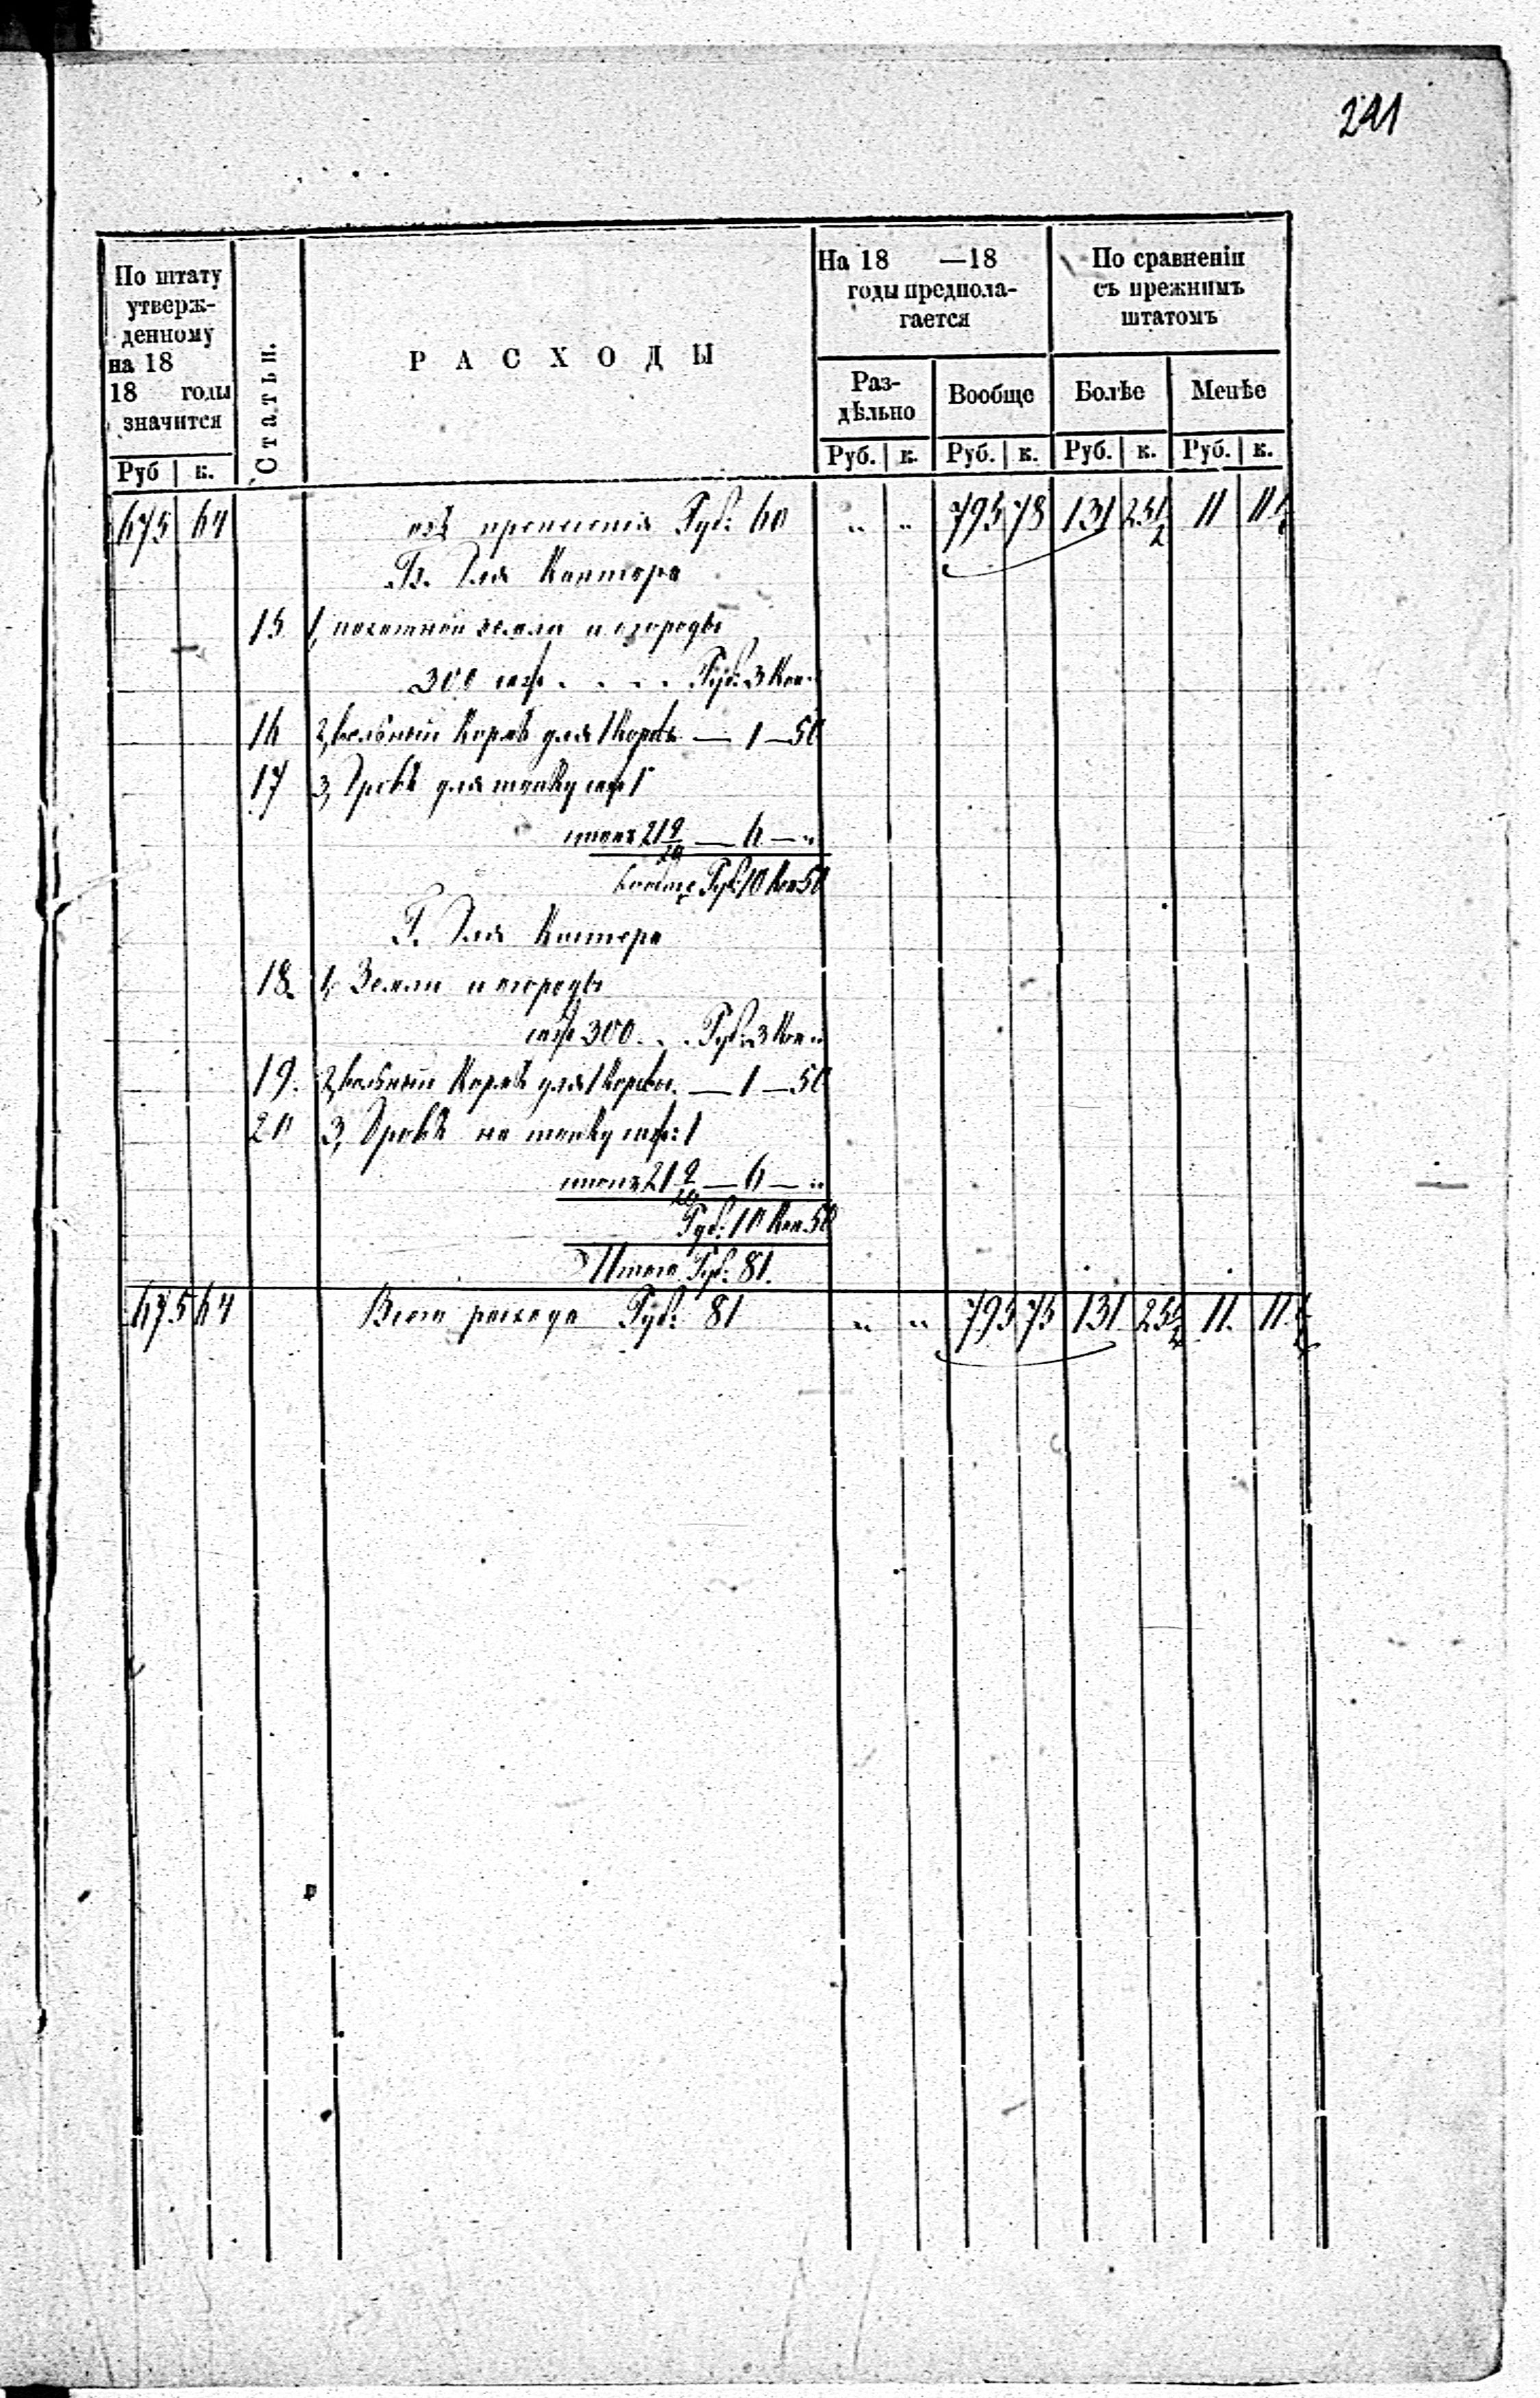 241
По штату утвержденному на 18 18 годы значится
Статьи.
РАСХОДЫ
На 18 —18 годы предполагается
По сравненіи съ прежнимъ штатомъ
Раздѣльно
Вообще
Болѣе
Менѣе
Руб к. Руб. к. Руб. к. Руб. к. Руб. к.
675 64 Руб: 60 „ „ 795 78 131 25½ 11 11½
Для Кантора
15 1, пахатной земли и огороды
300 . . . . Руб: 3 Коп „
16 2, вольный Кормъ для 1 Коровы — 1 — 50
17 3, Дровъ для топку саж 1
21 9/20 — 6 — „
вообще Руб 10 Коп 50
Г. Для Кистера
18. 1, Земли и огороды
саж 300 . . . Руб: 3 Коп „
19. 2, вольный Кормъ для 1 Коровы. — 1 — 50
20 3, Дровъ на топку саж: 1
21 9/20 — 6 — „
Руб: 10 Коп 50
Итого Руб: 81.
675 64 Всего расхода Руб: 81 „ „ 795 75 131 25½ 11. 11½